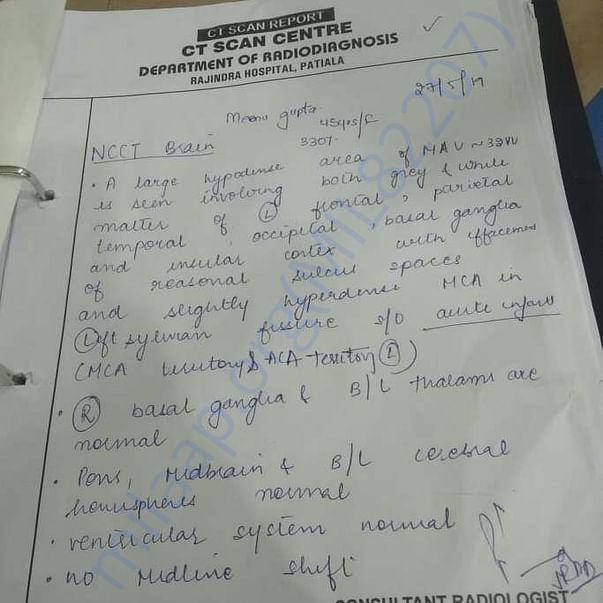 CT SCAN REPORT
CT SCAN CENTRE
DEPARTMENT OF RADIODIAGNOSIS
RAJINDRA HOSPITAL, PATIALA
27/5/19
Meenu Gupta 45yrs/F
3307
NCCT Brain
• A large hypodense area of MAV ~ 33HU
is seen involving both grey & white
matter of Ⓛ frontal, parietal
temporal, occipital, basal ganglia
and insular cortex with effacement
of reasonal sulcus spaces
and slightly hyperdense MCA in
Ⓛeft sylvian fissure s/o acute infarct
(MCA territory & ACA territory Ⓛ)
• Ⓡ basal ganglia & B/L thalami are
normal
• Pons, Midbrain & B/L cerebral
hemispheres normal
• ventricular system normal
• no Midline shift
CONSULTANT RADIOLOGIST
milaap.org(MIL82207)